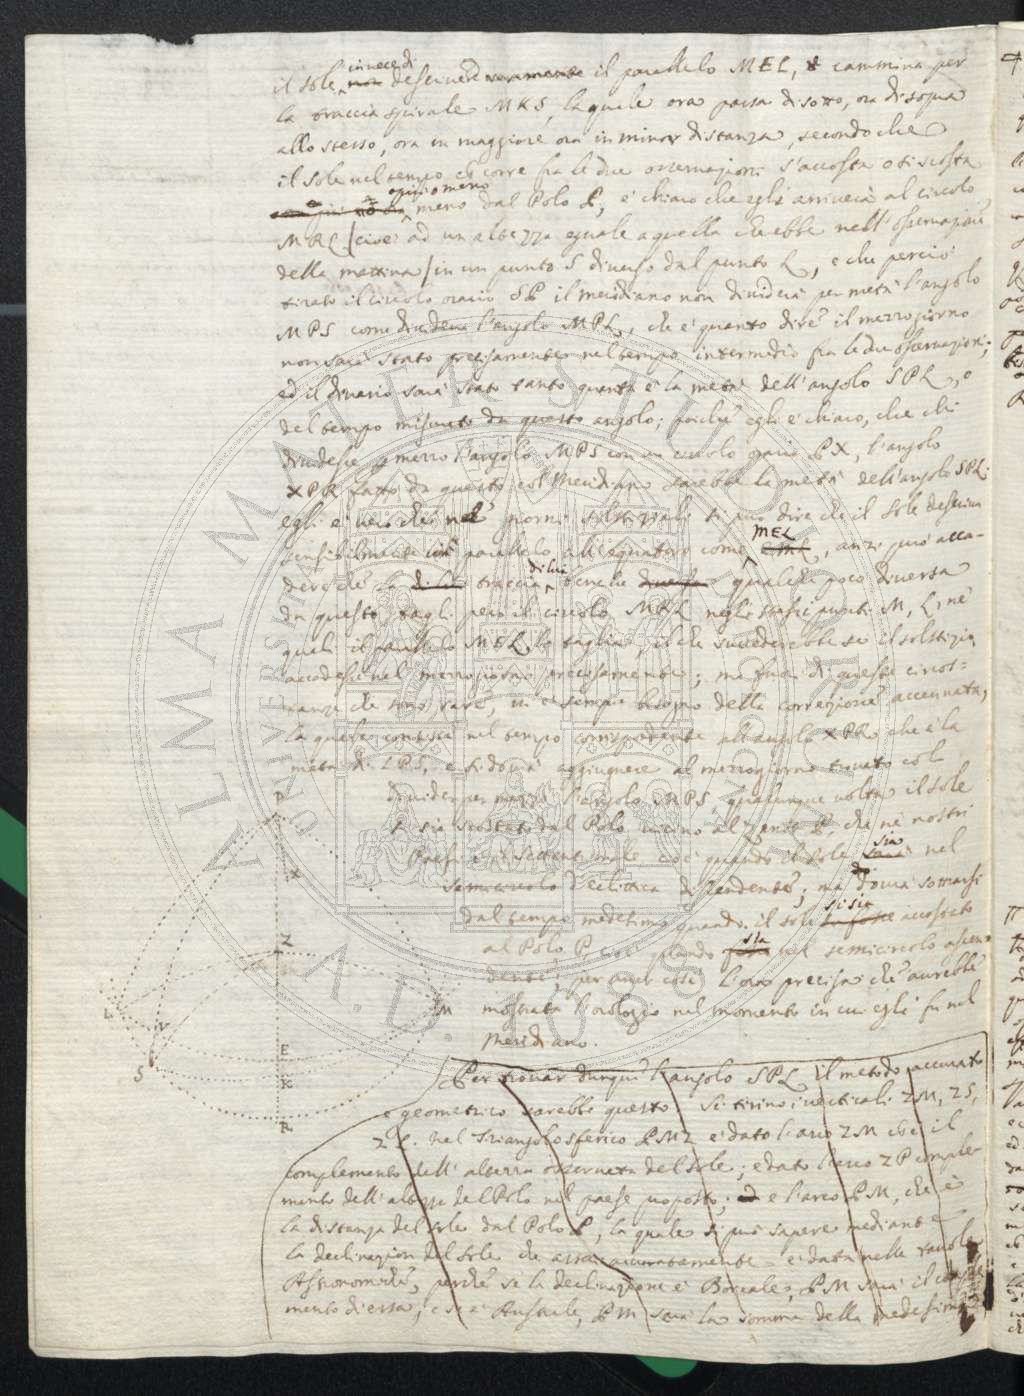 il sole invece di non descrivere veramente il parallelo MEL, cammina per
la traccia spirale MKS, la quale ora passa di sotto, ora di sopra
allo stesso, ora in maggiore ora in minor distanza, secondo che
il sole nel tempo che corre fra le due osservazioni s'accosta o si scosta
o più o meno meno dal Polo P; è chiaro che egli arriverà al circolo
MRL (cioè ad un altezza eguale a quella che ebbe nell'osservazione
della mattina) in un punto S diverso dal punto L, e che perciò
tirato il circolo orario SP il meridiano non dividerà per metà l'angolo
MPS come divideva l'angolo MPL, che è quanto dire il mezzogiorno
non sarà stato precisamente nel tempo intermedio fra le due osservazioni;
ed il divario sarà stato tanto quanta è la metà dell'angolo SPL, o
del tempo misurato da questo angolo; poiché egli è chiaro, che chi
dividesse per mezzo l'angolo MPS con un circolo orario PX, l'angolo
XPR fatto da questo col Meridiano sarebbe la metà dell'angolo SPL.
egli è vero che ne' giorni solstiziali si può dire che il Sole descriva
sensibilmente un parallelo all'equatore come MEL, anzi può acca-
dere che la di lui traccia benché qualche poco diversa
da questo tagli però il circolo MRL negli stessi punti M, L, ne'
quali il parallelo MEL lo taglia, il che succederebbe se il solstizio
accadesse nel mezzogiorno precisamente; ma fuori di queste circos-
tanze che sono rare, vi è sempre bisogno della correzione accennata,
la quale consiste nel tempo corrispondente all'angolo XPR che è la
metà di LPS, e si dovrà aggiugnere al mezzogiorno trovato col
divider per mezzo l'angolo MPS qualunque volta il sole
si sia scostato dal Polo vicino al zenit P, che ne' nostri
Paesi è il settentrionale, cioè quando il sole sia nel
semicircolo d'eclittica discendente; ma dovrà sottrarsi
dal tempo medesimo quando il sole si sia accostato
al Polo P, cioè quando sia nel semicircolo ascen-
dente, per aver così l'ora precisa che avrebbe
mostrata l'orologio nel momento in cui egli fu nel
Meridiano.
Per trovar dunque l'angolo SPL il metodo accurato
e geometrico sarebbe questo. Si tirino i verticali ZM, ZS,
ZL. nel Triangolo sferico PMZ è dato l'arco ZM che è il
complemento dell'altezza osservata del sole; è dato l'arco ZP comple-
mento dell'altezza del Polo nel paese proposto; e l'arco PM, che è
la distanza del sole dal Polo P, la quale si può sapere mediante
la declinazion del sole che assai accuratamente è data nelle tavole
Astronomiche, perché se la declinazione è Boreale, PM sarà il comple-
mento di essa, e se è Australe, PM sarà la somma della medesima
P
X
Z
L
V
M
S
E
K
R
ALMA MATER STUDIORUM
UNIVERSITÀ DI BOLOGNA
A.D. 1088